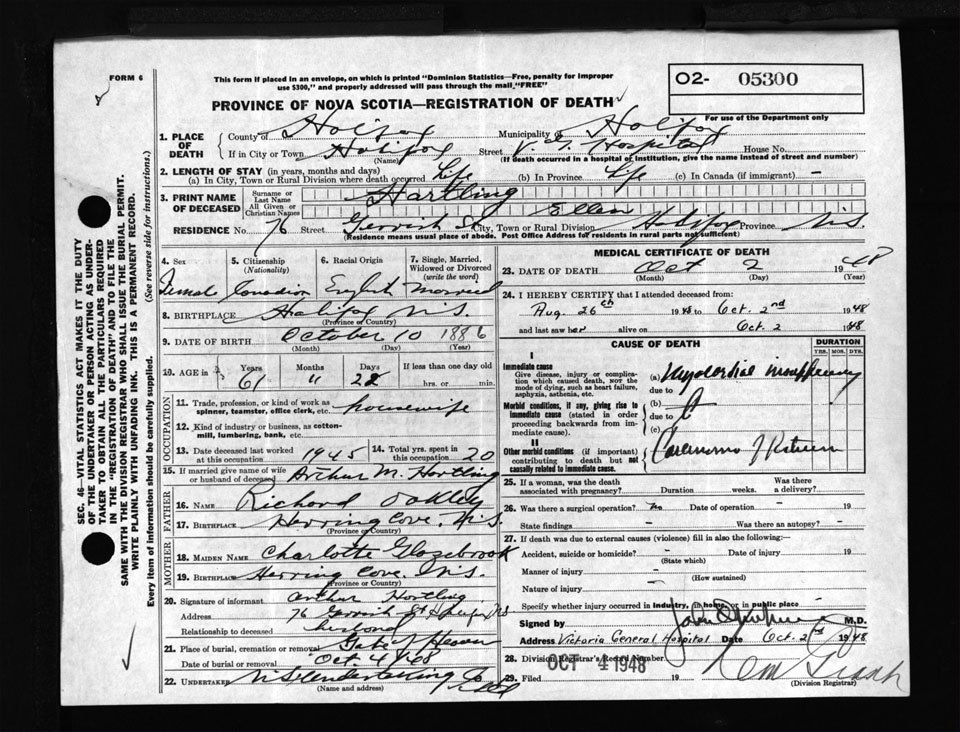 FORM 6
This form if placed in an envelope, on which is printed "Dominion Statistics—Free, penalty for improper
use $300," and properly addressed will pass through the mail, "FREE"
O2- 05300
For use of the Department only
PROVINCE OF NOVA SCOTIA—REGISTRATION OF DEATH
1. PLACE OF DEATH
County of Halifax Municipality of Halifax
If in City or Town Halifax Street V. G. Hospital House No.
(Name) (If death occurred in a hospital or institution, give the name instead of street and number)
2. LENGTH OF STAY (in years, months and days)
(a) In City, Town or Rural Division where death occurred Life (b) In Province Life (c) In Canada (if immigrant) —
3. PRINT NAME OF DECEASED
Surname or Last Name Hartling
All Given or Christian Names Ellen
RESIDENCE No. 76 Street Gerrish St City, Town or Rural Division Halifax Province N.S.
(Residence means usual place of abode. Post Office Address for residents in rural parts not sufficient)
4. Sex
Female
5. Citizenship (Nationality)
Canadian
6. Racial Origin
English
7. Single, Married, Widowed or Divorced (write the word)
Married
8. BIRTHPLACE Halifax N.S.
(Province or Country)
9. DATE OF BIRTH October 10 1886
(Month) (Day) (Year)
10. AGE in Years 61 Months 11 Days 22 If less than one day old
hrs. or min.
OCCUPATION
11. Trade, profession, or kind of work as
spinner, teamster, office clerk, etc. housewife
12. Kind of industry or business, as cotton-
mill, lumbering, bank, etc.
13. Date deceased last worked at this occupation 1945
14. Total yrs. spent in this occupation 20
15. If married give name of wife
or husband of deceased Arthur M. Hartling
FATHER
16. Name Richard Oakley
17. Birthplace Herring Cove, N.S.
MOTHER
18. MAIDEN NAME Charlotte Glazebrook
19. BIRTHPLACE Herring Cove, N.S.
(Province or Country)
20. Signature of informant Arthur Hartling
Address 76 Gerrish St Halifax NS
Relationship to deceased husband
21. Place of burial, cremation or removal Gate of Heaven
Date of burial or removal Oct. 4/48
22. UNDERTAKER N S Undertaking Co
(Name and address)
MEDICAL CERTIFICATE OF DEATH
23. DATE OF DEATH Oct 2 1948
(Month) (Day) (Year)
24. I HEREBY CERTIFY that I attended deceased from
Aug. 26th 1948 to Oct. 2nd 1948
and last saw her alive on Oct. 2 1948
CAUSE OF DEATH
DURATION
YRS. MOS. DYS.
I
Immediate cause
Give disease, injury or complication which caused death, NOT the mode of dying, such as heart failure, asphyxia, asthenia, etc.
(a) Myocardial insufficiency
due to
Morbid conditions, if any, giving rise to immediate cause (stated in order proceeding backwards from immediate cause).
(b)
due to
(c)
II
Other morbid conditions (if important) contributing to death but not causally related to immediate cause.
Carcinoma of
25. If a woman, was the death associated with pregnancy? Duration weeks. Was there a delivery?
26. Was there a surgical operation? no Date of operation — 19
State findings — Was there an autopsy? -
27. If death was due to external causes (violence) fill in also the following:—
Accident, suicide or homicide? - Date of injury 19
(State which)
Manner of injury -
(How sustained)
Nature of injury -
Specify whether injury occurred in industry, in home, or in public place
Signed by M.D.
Address Victoria General Hospital Date Oct. 2nd 1948
28. Division Registrar's Record Number
29. Filed OCT 4 1948 19
(Division Registrar)
SEC. 46—VITAL STATISTICS ACT MAKES IT THE DUTY
OF THE UNDERTAKER OR PERSON ACTING AS UNDER-
TAKER TO OBTAIN ALL THE PARTICULARS REQUIRED
IN THE "REGISTRATION OF DEATH" AND TO FILE THE
SAME WITH THE DIVISION REGISTRAR WHO SHALL ISSUE THE BURIAL PERMIT.
WRITE PLAINLY WITH UNFADING INK. THIS IS A PERMANENT RECORD.
Every item of information should be carefully supplied. (See reverse side for instructions.)